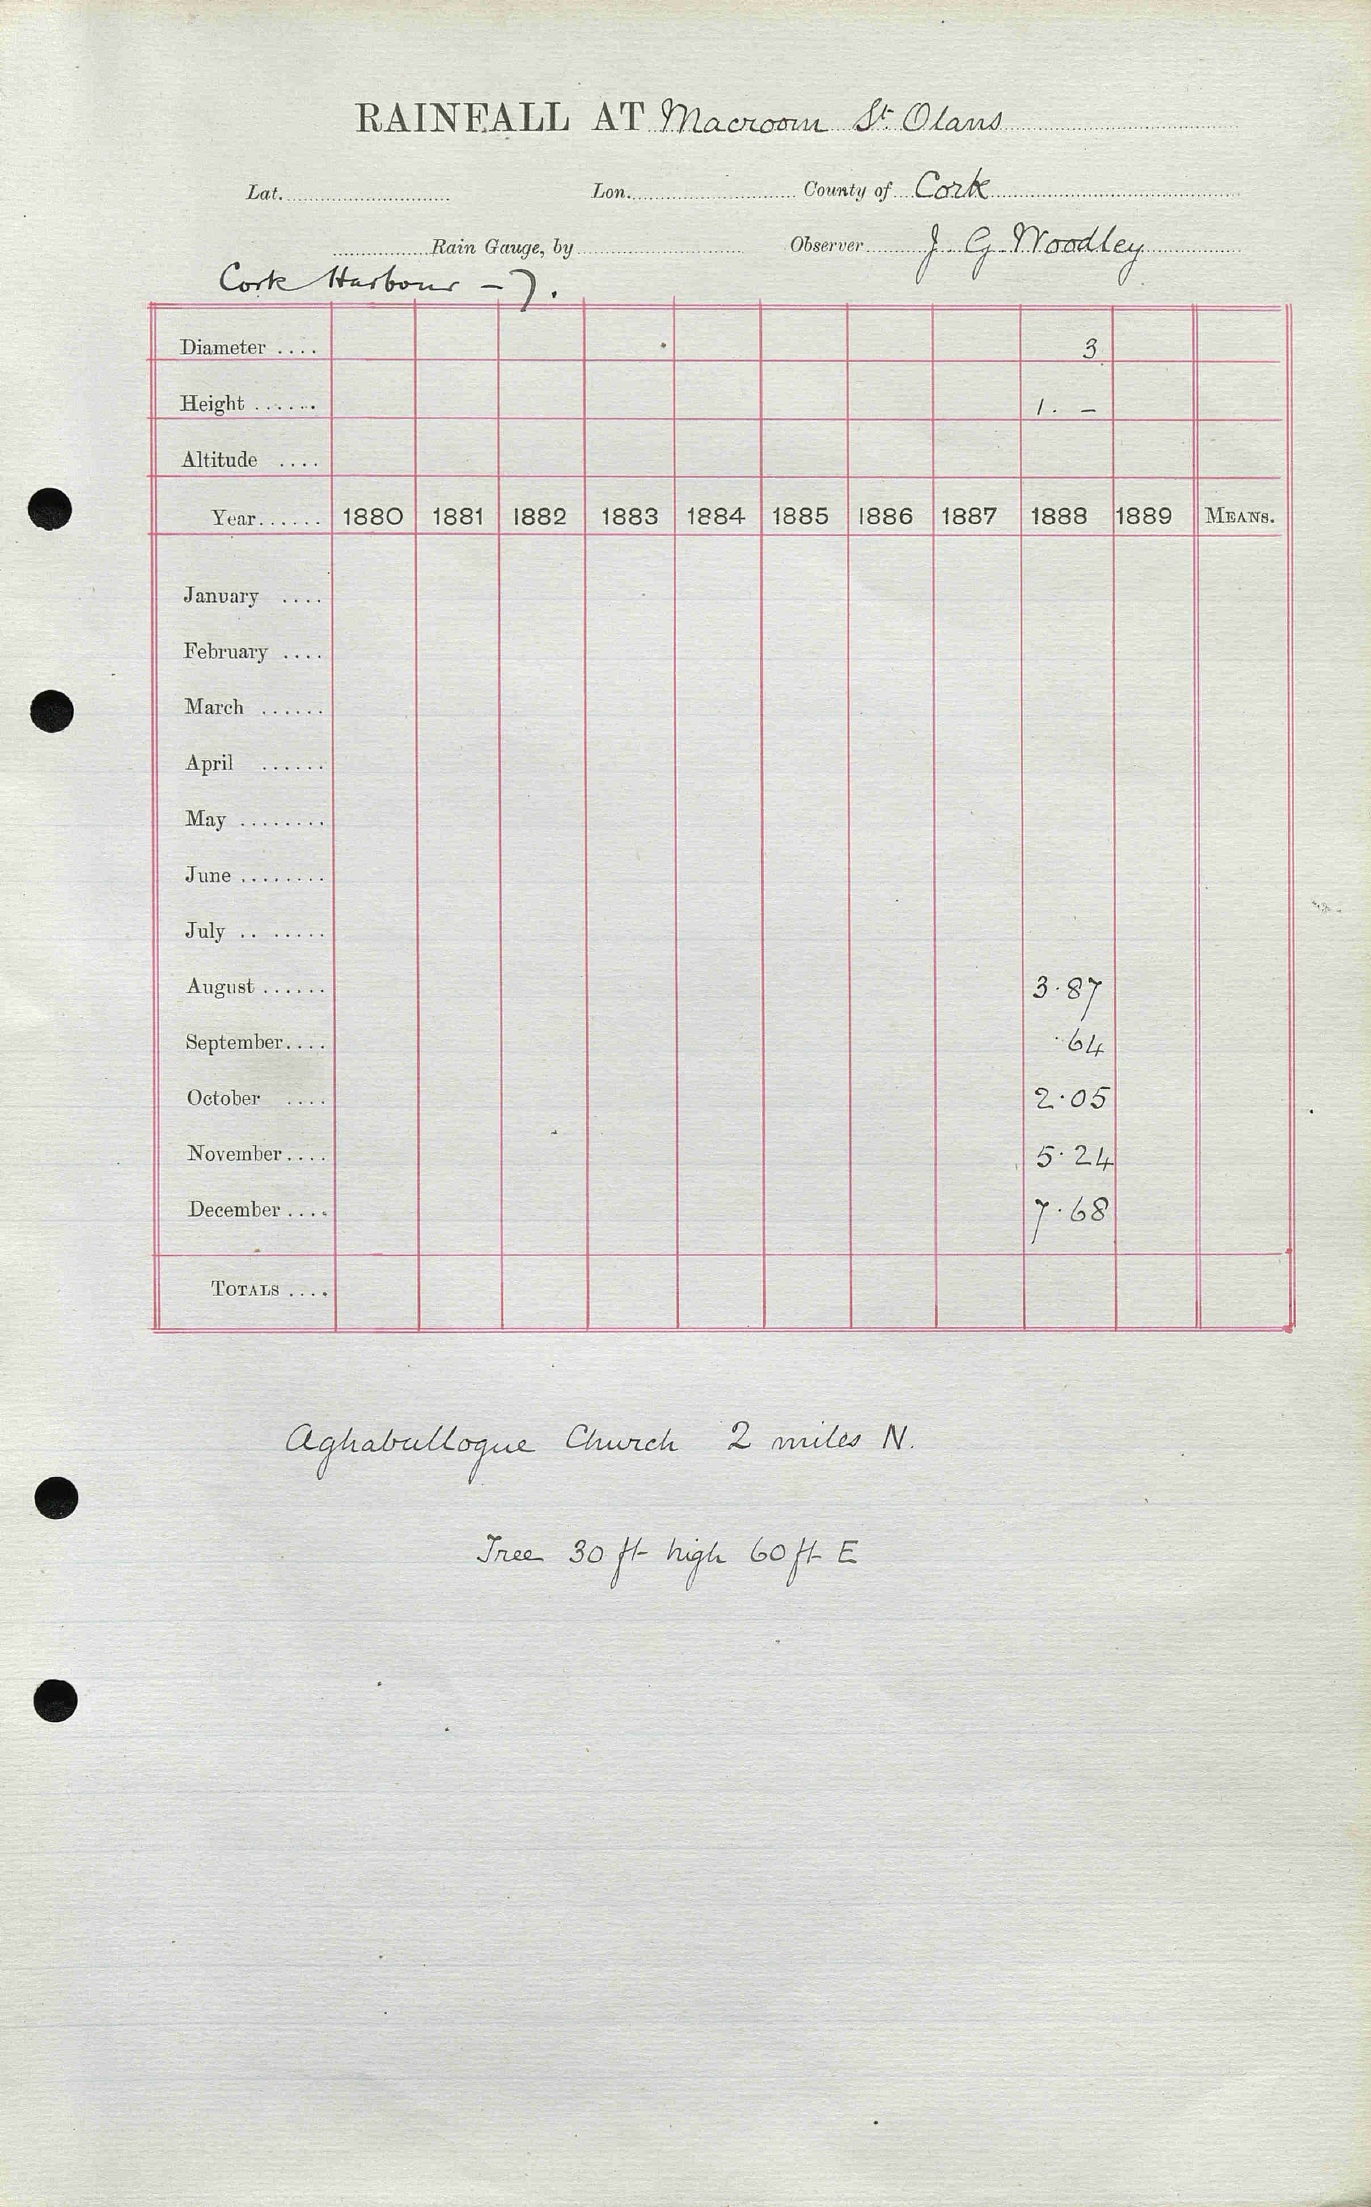 RAINFALL AT Macroom St. Olans
Lat. Lon. County of Cork
Rain Gauge, by Observer J G Woodley
Cork Harbour - 7.
Diameter .... 3
Height ...... 1. -
Altitude ....
Year...... 1880 1881 1882 1883 1884 1885 1886 1887 1888 1889 MEANS.
January ....
February ....
March ......
April ......
May ........
June ........
July .. ......
August ...... 3.87
September.... .64
October .... 2.05
November.... 5.24
December .... 7.68
TOTALS ....
Aghabullogue Church 2 miles N.
Tree 30 ft high 60 ft E